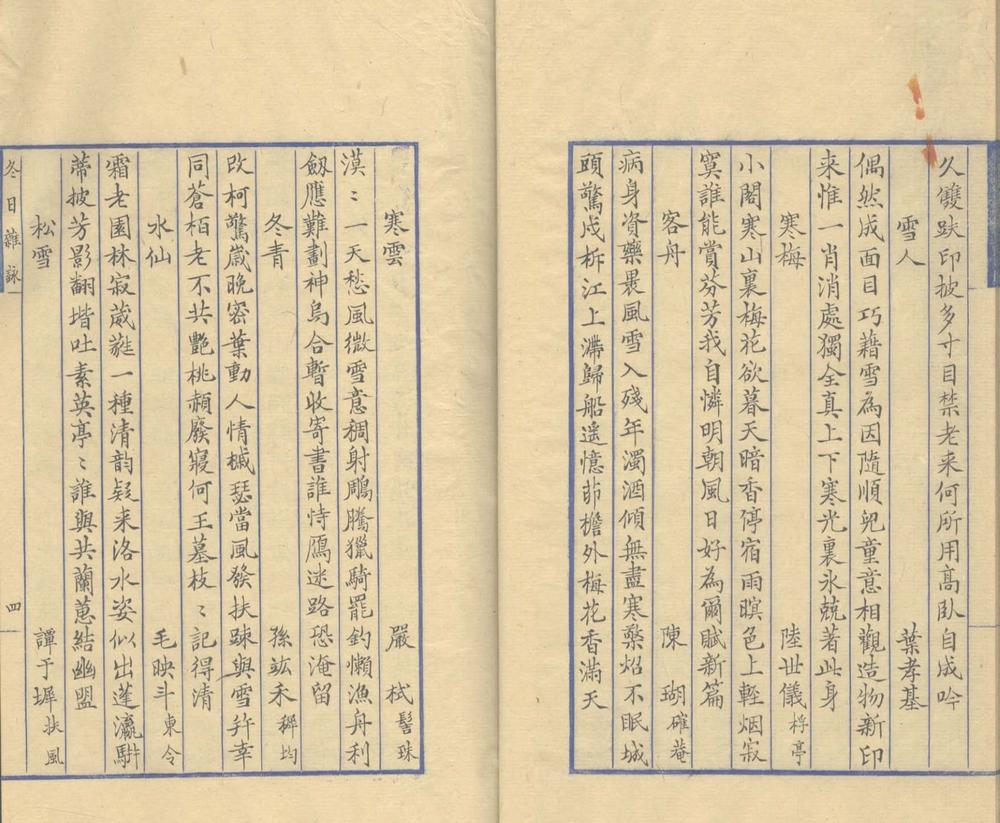 久雙趺印披多寸目禁老来何所用高臥自成吟
雪人 葉孝基
偶然成面目巧藉雪為因隨順兒童意相觀造物新印
来惟一肖消處獨全真上下寒光裏氷兢著此身
寒梅 陸世儀桴亭
小閣寒山裏梅花欲暮天暗香停宿雨暝色上輕烟寂
寞誰能賞芬芳我自憐明朝風日好為爾賦新篇
客舟 陳瑚確菴
病身資藥畏風雪入殘年濁酒傾無盡寒檠炤不眠城
頭驚戍柝江上滯歸船遥憶茆檐外梅花香滿天
寒雲 嚴栻髻珠
漠〻一天愁風微雪意稠射鵰騰獵騎罷釣懶漁舟利
劔應難劃神烏合暫收寄書誰恃鴈迷路恐淹留
冬青 孫兹禾穉均
改柯驚嵗晚密葉動人情槭瑟當風發扶踈與雪并幸
同蒼栢老不共艷桃赬廢寢何王墓枝〻記得清
水仙 毛映斗東令
霜老園林寂葳蕤一種清韵疑来洛水姿似出蓬瀛駢
蒂披芳影翻堦吐素英亭〻誰與共蘭蕙結幽盟
松雪 譚于墀扶風
冬日雜詠 四